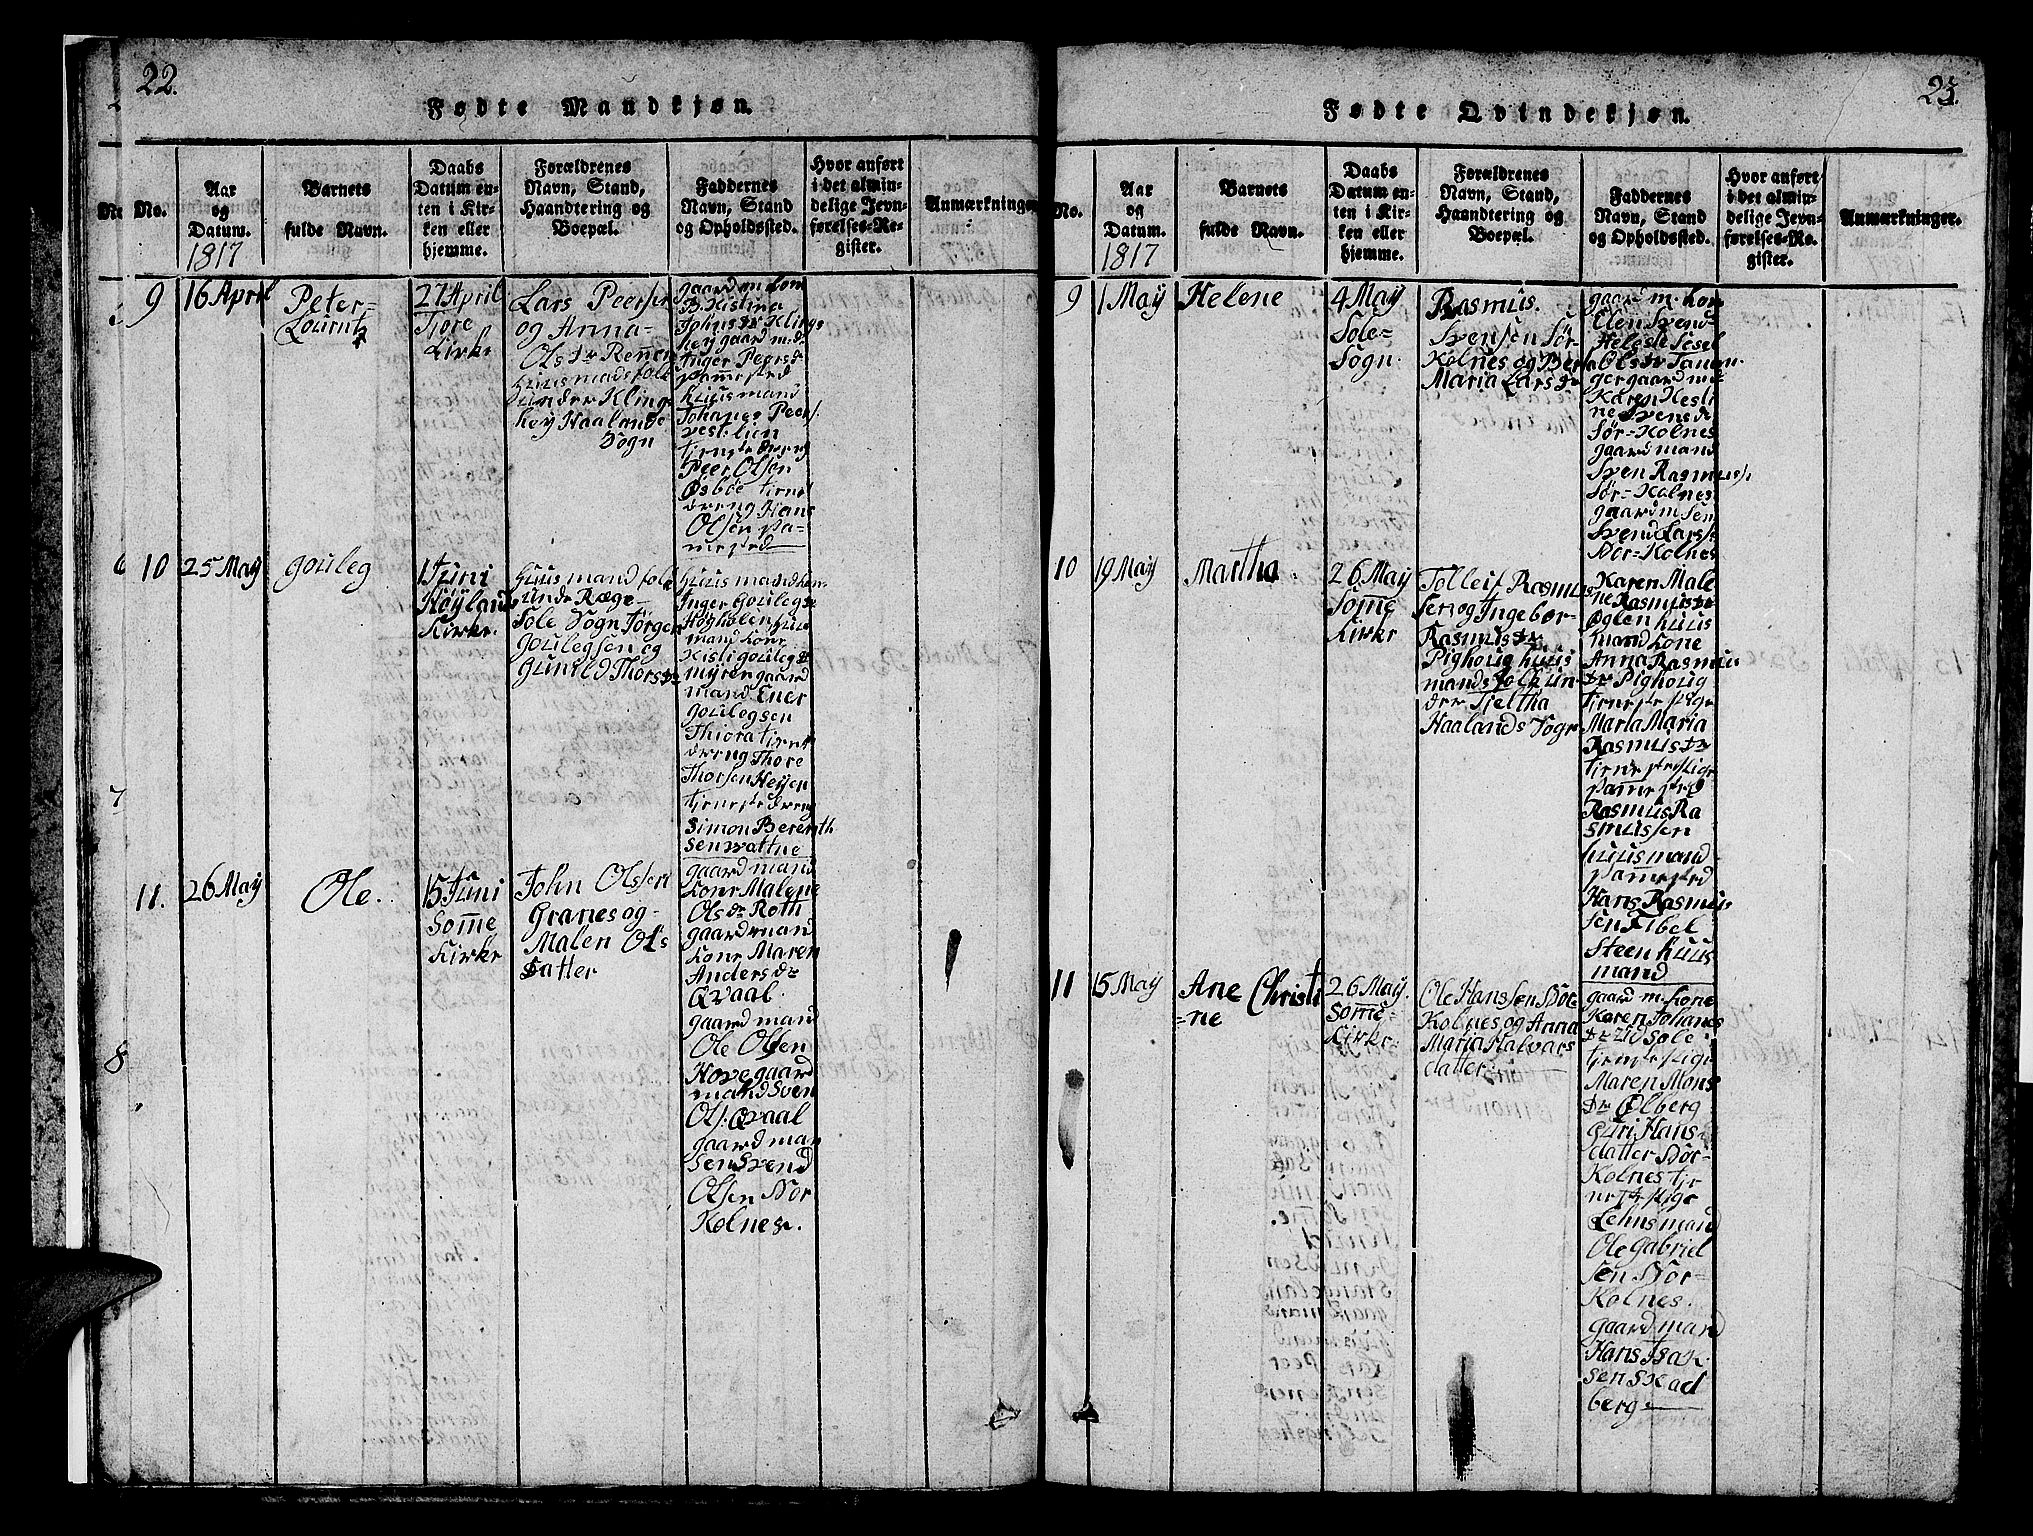 22.
Fødte Mandkjøn.
No.
Aar
og
Datum.
1817
Barnets
fulde Navn.
Daabs
Datum en-
ten i Kir-
ken eller
hjemme.
Forældrenes
Navn, Stand,
Haandtering og
Boepæl.
Faddernes
Navn, Stand
og Opholdssted.
Hvor anført
i det almin-
delige Jevn-
førelses-Re-
gister.
Anmærkninger
9
16 April
Peter
Lourntz
27 April
Tjore
Kirke
Lars Peersen
og Anna
Olsdr Rennen
Huusmandsfolk
under Klings
hey Haalands
Sogn
gaardm kon
B. Kistina
Johnsdr Klings
hey gaard m. d.
Inger Peersd
sammested
huusmand
Johanes Peers.
vestlien
tjenstedreng
Peer Olsen
Øsbøe tienst
dreng Hans
Olsen sa-
mested
10
25 May
gouleg
1 Juni
Høyland
Kirke.
Huusmandfolk
unde Ræge
Sole Sogn Jørgen
goulegsen og
Gunild Thorsdr
Huusmandkon
Inger goulegsdr
Høgholen huus
mand kone
Kisti goulegsdr
myren gaard
mand Ener
goulegsen
Thiora tjenst
dreng Thore
Thorsen Heyen
tjenestedreng
Simon Berenth
sen vattne
11.
26 May
Ole.
15 Juni
Somme
Kirke
John Olssen
Granes og
Malen Ols
Datter
gaardmand
kone Malene
Olsdr Roth
gaardmand
kone Maren
Andersdr
Qvaal.
gaardmand
Ole Olsen
Hove gaard
mand Sven
Ols. Qvaal
gaardman
sen Svend
Olsen Nor
Kolnes.
6
7
8
23.
Fødte Qvindekjøn.
No.
Aar
og
Datum.
1817
Barnets
fulde Navn.
Daabs
Datum en-
ten i Kir-
ken eller
hjemme.
Forældrenes
Navn, Stand,
Haandtering og
Boepæl.
Faddernes
Navn, Stand
og Opholdssted.
Hvor anført
i det almin-
delige Jevn-
førelses-Re-
gister.
Anmærkninger.
9
1 May
Helene
4 May
Sole-
Sogn.
Rasmus.
Svensen Sør
Kolnes og Berta
Maria Larsdr
gaard m. kon
Elen Svend
Heleste Sesel
Olsdr Tanen
ger gaardm
Karen Kesti
ne Svensd
Sør-Kolnes
gaardmand
Sven Rasmuss.
Sør-Kolnes
gaardm sen
Svend Larss.
Sør-Kolnes
10
19 May
Martha.
26 May
Somme
Kirke
Tolleif Rasmus
sen og Ingebor
Rasmusdr
Pighoug huus
mandsfolk un-
der Tjeltha
Haalands Sogn
Karen Male
ne Rasmusdr
Øglen huus
mand kone
Anna Rasmus
dr Pighoug
tjeneste pige
Marta Maria
Rasmusdr
tjenestepige
sammested
Rasmus Ra
smussen
huusmand
sammested
Hans Rasmus
sen Fibel
Steen huus
mand
11
15 May
Ane Christi
=ne
26 May.
Somme-
Kirke
Ole Hanssen Nor
Kolnes og Anna
Maria Halvars
datter
gaard m. kone
Karen Johanes
dr Sole
tjenstepige
Maren Mons
dr Ølberg
Guri Hans-
datter Nor-
Kolnes tje
nestepige
Lehnsmand
Ole Gabriel
sen Nor-
Kolnes.
gaardmand
Hans Isak
sen Skad
berg